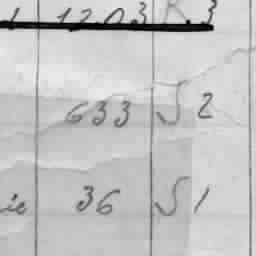 1203 R.3
633 S 2
ie 36 S 1